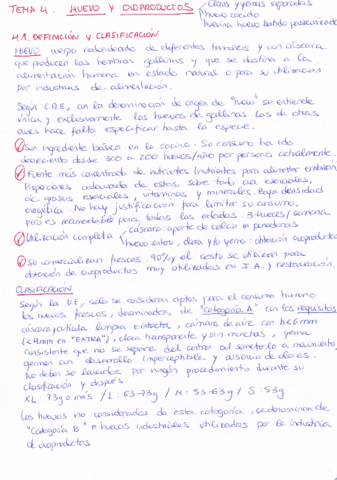 TEMA 4. HUEVO Y OVOPRODUCTOS
Claras y yemas separadas
Huevo cocido
huevina: huevo batido pasteurizado
4.1. DEFINICIÓN y CLASIFICACIÓN
HUEVO cuerpo redondeado de diferentes tamaños y con cáscara
que producen las hembras gallinas y que se destina a la
alimentación humana en estado natural o para su utilización
por industrias de alimentación.
Según C.A.E, con la denominación de origen de "huevo" se entiende
única y exclusivamente los huevos de gallinas. Los de otras
aves hace falta especificar hasta la especie.
Son ingrediente básico en la cocina. Su consumo ha ido
decreciendo desde 300 a 200 huevos/año por persona actualmente.
Fuente más concentrada de nutrientes (nutrientes para alimentar embrión)
Proporciones adecuada de estas, sobre todo a.a esenciales,
ác. grasos esenciales, vitaminas y minerales. Baja densidad
energética. No hay justificación para limitar su consumo,
pero es recomendable para todas las edades. 3-4 veces/semana.
Utilización completa
cáscara: aporte de calcio en
huevo entero, clara y/o yema: obtención ovoproductos
Se comercializan frescos. 90% y el resto se utilizan para
obtención de ovoproductos muy utilizados en I.A. y restauración.
CLASIFICACIÓN
Según la U.E, solo se consideran aptos para el consumo humano
los huevos frescos, denominados de "Categoría A" con los requisitos
cáscara y cutícula limpia e intacta, cámara de aire con h<6mm
(<4mm en "EXTRA"), clara transparente y sin manchas, yema
consistente que no se separe del centro al someterlo a movimiento,
germen con desarrollo imperceptible y ausencia de olores.
No deben ser lavados por ningún procedimiento durante su
clasificación y después.
XL: 73g o más / L: 63-73g / M: 53-63g / S: 53g
Los huevos no considerados de esta categoría, se denominan de
"Categoría B" o huevos industriales utilizados por la industria
de ovoproductos